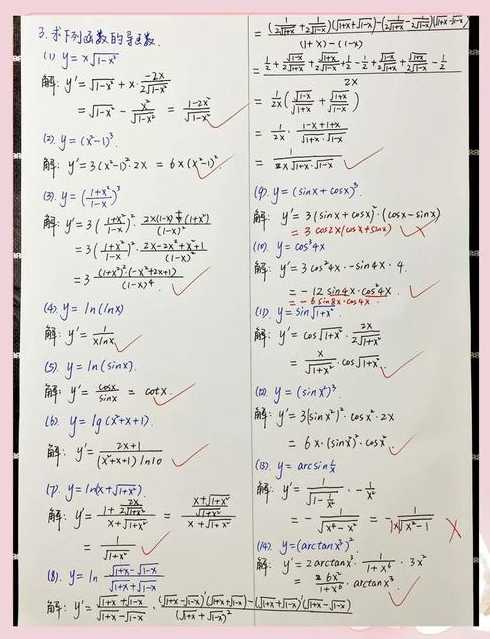 3. 求下列函数的导函数.
(1) y = x√(1-x²)
解: y' = √(1-x²) + x · (-2x)/(2√(1-x²))
= √(1-x²) - x²/√(1-x²) = (1-2x²)/√(1-x²)
(2) y = (x²-1)³
解: y' = 3(x²-1)² · 2x = 6x(x²-1)²
(3) y = ((1+x²)/(1-x))³
解: y' = 3((1+x²)/(1-x))² · (2x(1-x)+(1+x²))/(1-x)²
= 3((1+x²)/(1-x))² · (2x-2x²+x²+1)/(1-x)²
= 3 (1+x²)²(-x²+2x+1)/(1-x)⁴
(4) y = ln(lnx)
解: y' = 1/(xlnx)
(5) y = ln(sinx).
解: y' = cosx/sinx = cotx.
(6) y = lg(x²+x+1).
解: y' = (2x+1)/((x²+x+1)ln10)
(7) y = ln(x+√(1+x²)).
解: y' = (1+2x/(2√(1+x²)))/(x+√(1+x²)) = ((x+√(1+x²))/√(1+x²))/(x+√(1+x²))
= 1/√(1+x²)
(8) y = ln (√(1+x)-√(1-x))/(√(1+x)+√(1-x))
解: y' = (√(1+x)+√(1-x))/(√(1+x)-√(1-x)) · ((√(1+x)-√(1-x))'(√(1+x)+√(1-x))-(√(1+x)+√(1-x))'(√(1+x)-√(1-x)))/(√(1+x)+√(1-x))²
= ((1/(2√(1+x))+1/(2√(1-x)))(√(1+x)+√(1-x))-(1/(2√(1+x))-1/(2√(1-x)))(√(1+x)-√(1-x)))/((1+x)-(1-x))
= (1/2+√(1-x)/(2√(1+x))+√(1+x)/(2√(1-x))+1/2-1/2+√(1-x)/(2√(1+x))+√(1+x)/(2√(1-x))-1/2)/(2x)
= 1/(2x) (√(1-x)/√(1+x) + √(1+x)/√(1-x))
= 1/(2x) · (1-x+1+x)/(√(1+x)·√(1-x))
= 1/(x√(1+x)·√(1-x))
(9) y = (sinx+cosx)³
解: y' = 3(sinx+cosx)² · (cosx-sinx)
= 3cos2x(cosx+sinx)
(10) y = cos³4x
解: y' = 3cos²4x · -sin4x · 4
= -12 sin4x · cos²4x
= -6 sin8x · cos4x
(11) y = sin√(1+x²)
解: y' = cos√(1+x²) · 2x/(2√(1+x²))
= x/√(1+x²) · cos√(1+x²)
(12) y = (sinx²)³
解: y' = 3(sinx²)² · cosx² · 2x
= 6x·(sinx²)² · cosx²
(13) y = arcsin 1/x
解: y' = 1/√(1-1/x²) · -1/x²
= -1/√(x⁴-x²) = 1/(|x|√(x²-1))
(14) y = (arctanx³)²
解: y' = 2arctanx³ · 1/(1+x⁶) · 3x²
= 6x²/(1+x⁶) · arctanx³